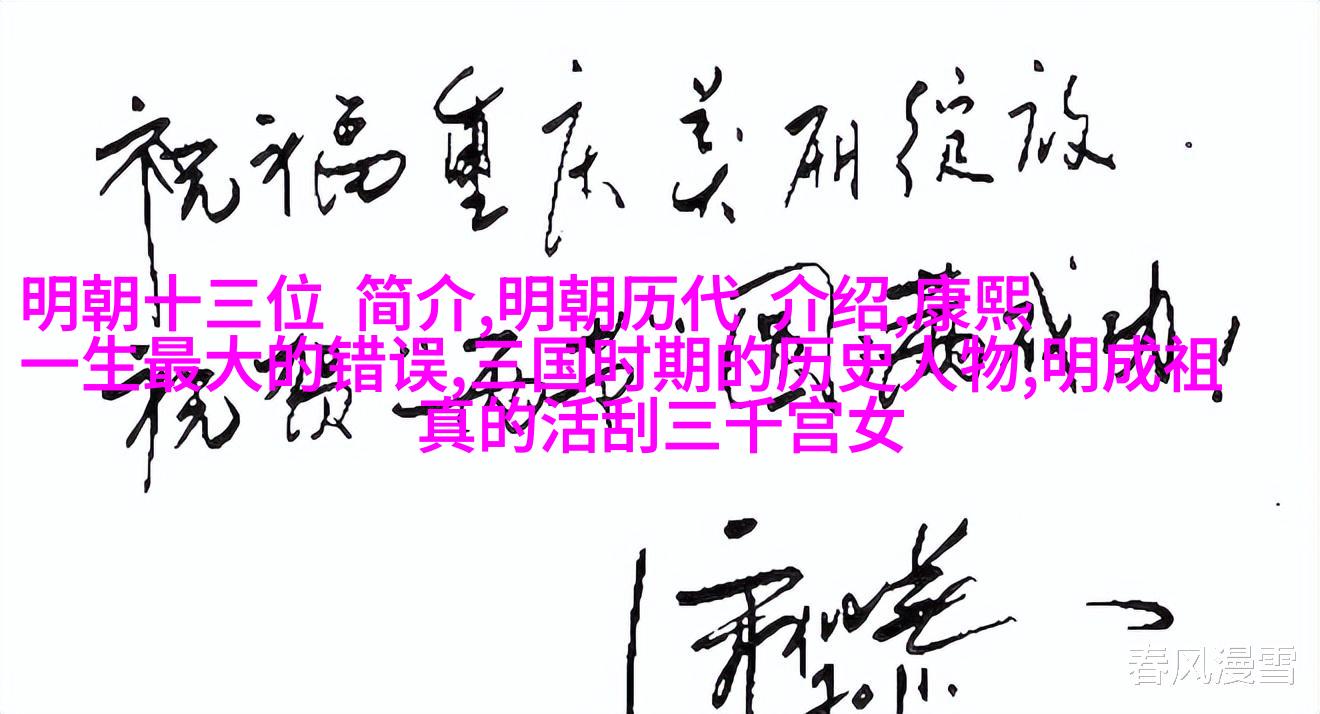 祝福重庆美丽绽放.
明朝十三位 简介,明朝历代 介绍,康熙
一生最大的错误,三国时期的历史人物,明成祖
真的活刮三千宫女
祝 圆满成功!
2011.
春风漫雪